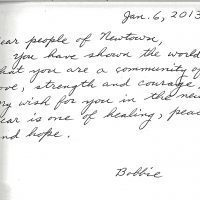 Jan. 6, 2013
ear people of Newtown,
you have shown the world
hat you are a community of
ove, strength and courage.
y wish for you in the new
ear is one of healing, peac
nd hope.
Bobbie